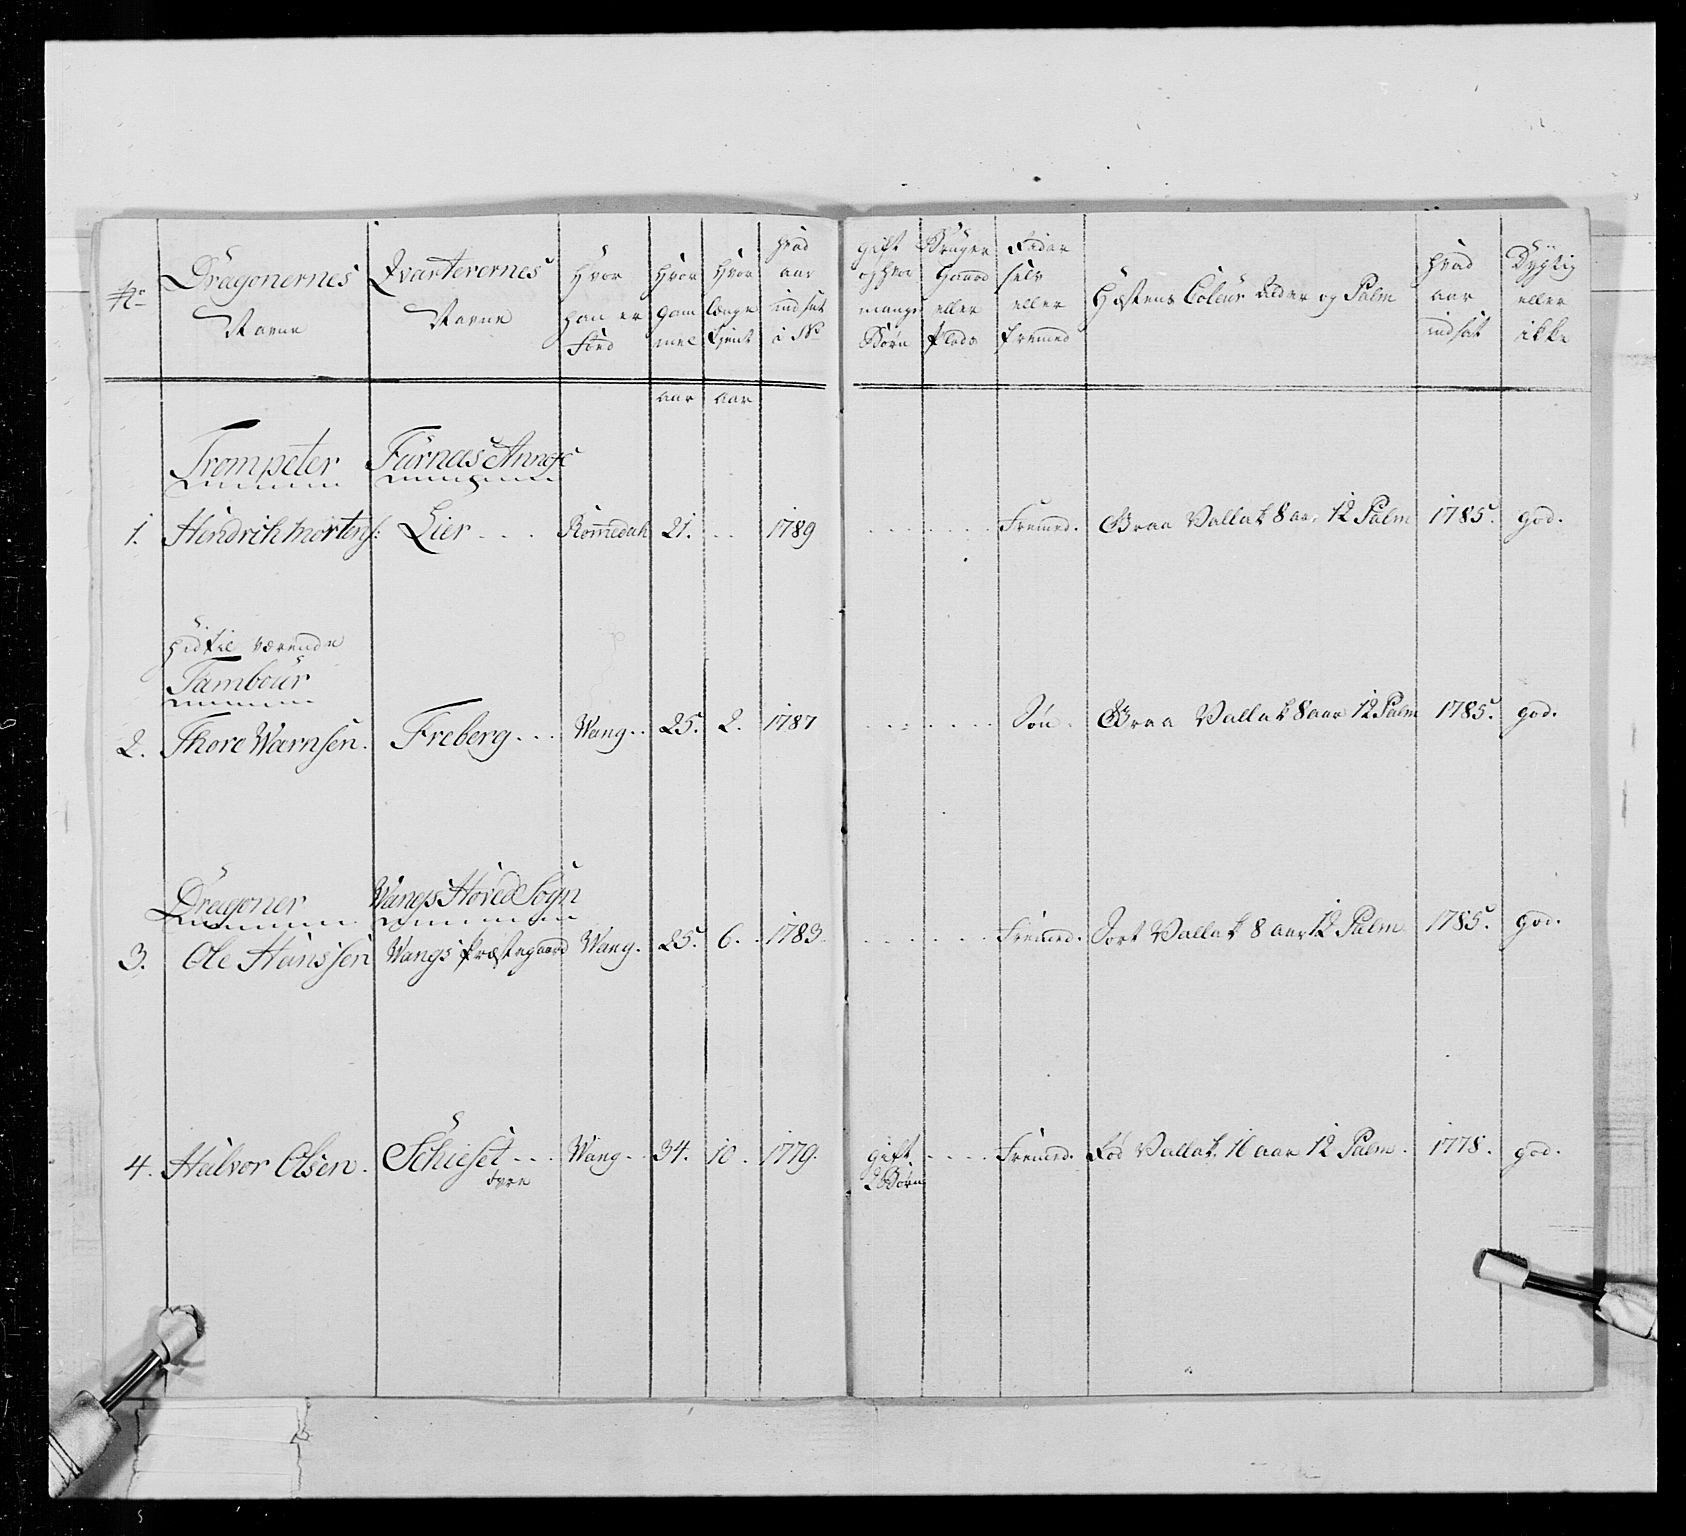 No
Dragonernes
Navne
Qvarterernes
Navne
Hvor
han er
Fød
Hvor
gam
mel
Hvor
længe
tjent
hvad
aar
indsat
i No
gift
og hvor
mange
Børn
Bruger
Gaard
eller
Plads
Rider
selv
eller
fremed
Hæstens Coleur alder og Palm
hvad
aar
indsat
Dygtig
eller
ikke
aar aar
Trompeter Furnæs Annex
1. Hendrich Mortens: Lier . . . Romedahl 21. . . 1789 . . . . . . Fremed. Graa Vallak 8 aar 12 Palm 1785. god.
hidtil værende
Tambour
2. Thore Warnsen. Freberg . . . Wang . . 25. 2. 1787 . . . . . . Søn. Graa Vallak 8 aar 12 Palm 1785. god.
Dragoner Wangs Hoved Sogn
3. Ole Hanssen Wangs Præstegaard Wang. 25. 6. 1783 . . . . . . Fremed. Sort Vallak 8 aar 12 Palm 1785. god.
4. Halvor Olsen. Schieset . . . Wang . . 34. 10. 1779. gift . . . . Fremed. Rød Vallak 16 aar 12 Palm. 1778. god.
øvre 2 Børn